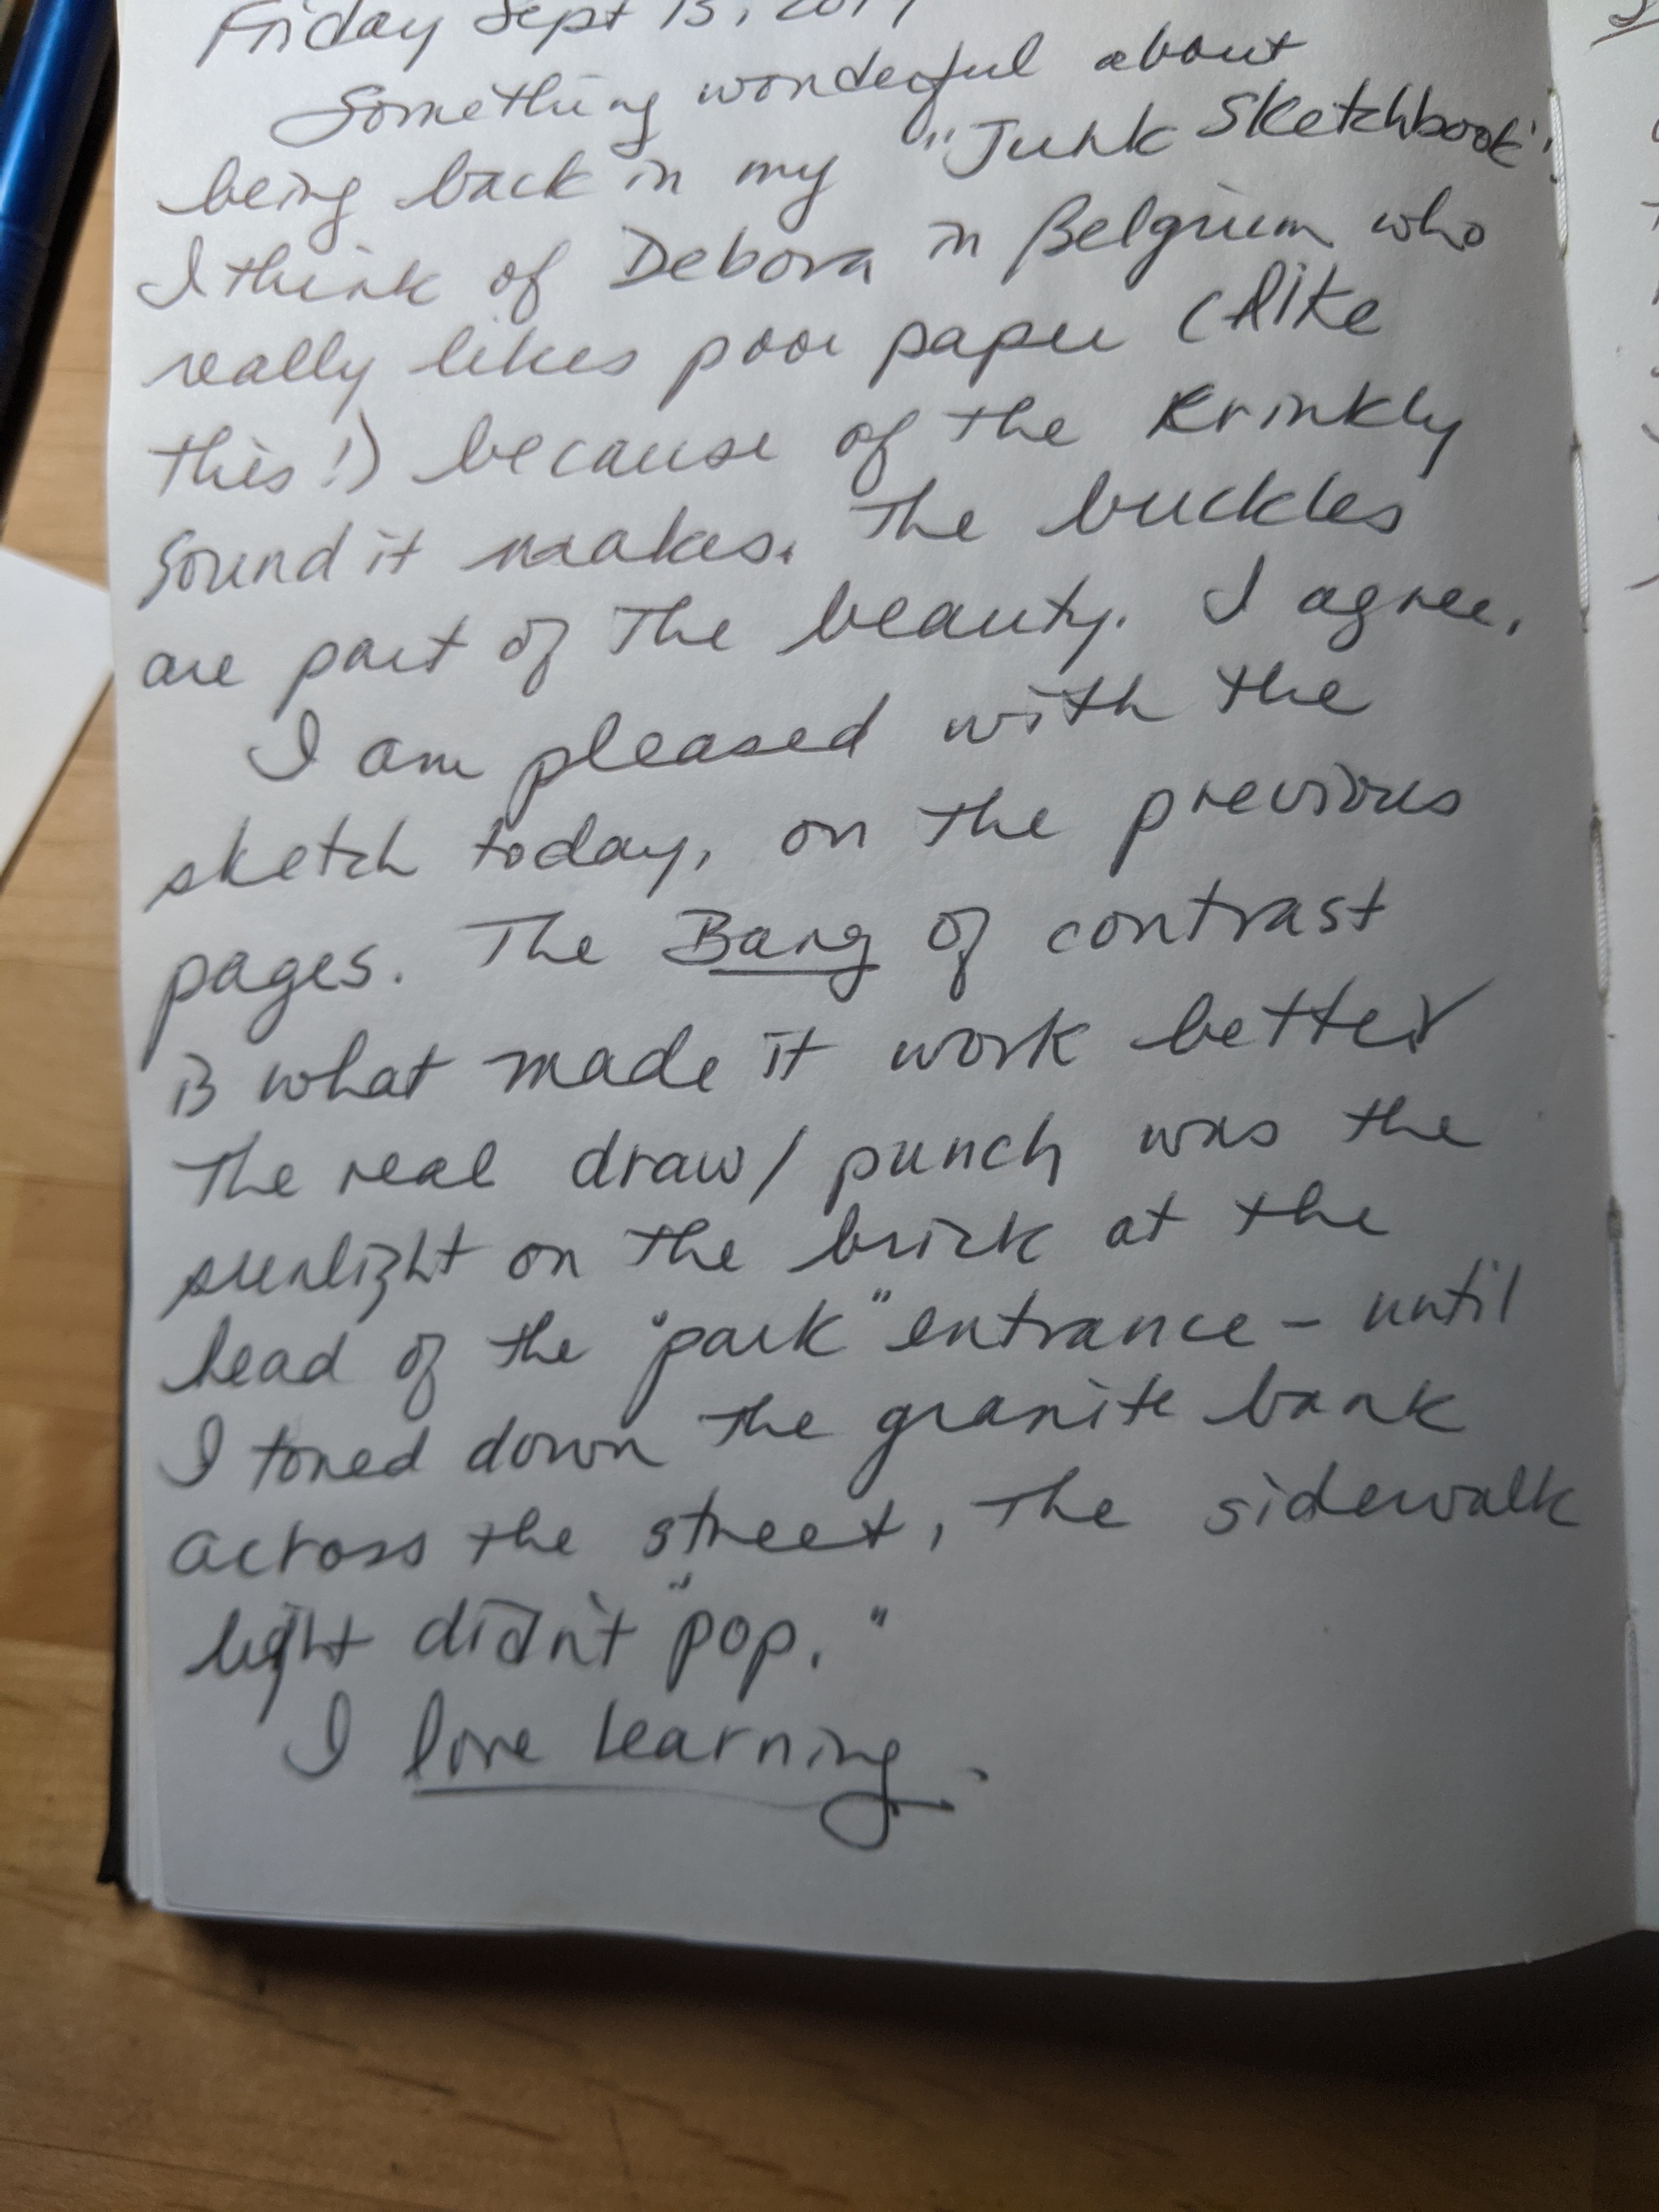 Friday Sept 13, 2019
Something wonderful about
being back in my "Junk Sketchbook".
I think of Debora in Belgium who
really likes poor paper (like
this!) because of the Krinkly
sound it makes. The buckles
are part of the beauty. I agree.
I am pleased with the
sketch today, on the previous
pages. The Bang of contrast
is what made it work better
The real draw/punch was the
sunlight on the brick at the
head of the "park" entrance - until
I toned down the granite bank
across the street, the sidewalk
light didn't "pop."
I love learning.